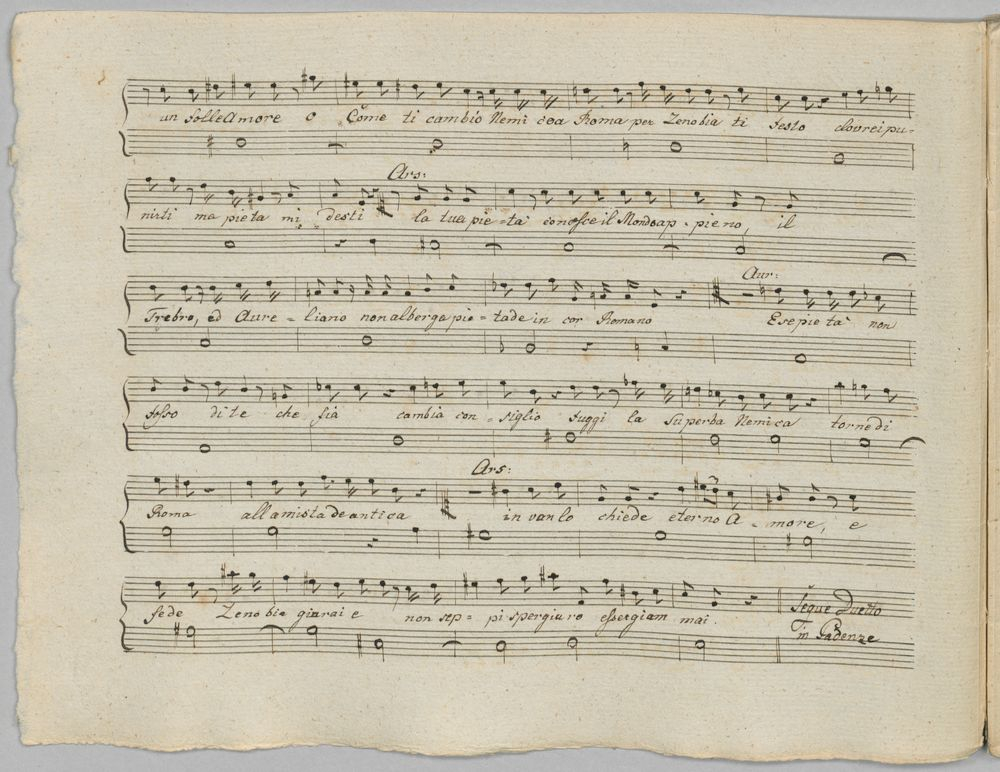 un folle Amore o Come ti cambiò Nemica a Roma per Zenobia ti festo dovrei pu-
Ars:
nirti ma pieta mi desti la tua pie=tà conosce il Mondo ap-pieno, il
Aur:
Trebro, ed Aure=liano non alberga pie=tade in cor Romano E se pietà non
fosso di te che sià cambia con=siglio fuggi la superba Nemica torne di
Ars:
Roma all amista de antica in van lo chiede eterno A=more, e
fede Zenobia giurai e non sep=pi spergiuro esser giam mai.
segue Duetto
in Cadenze